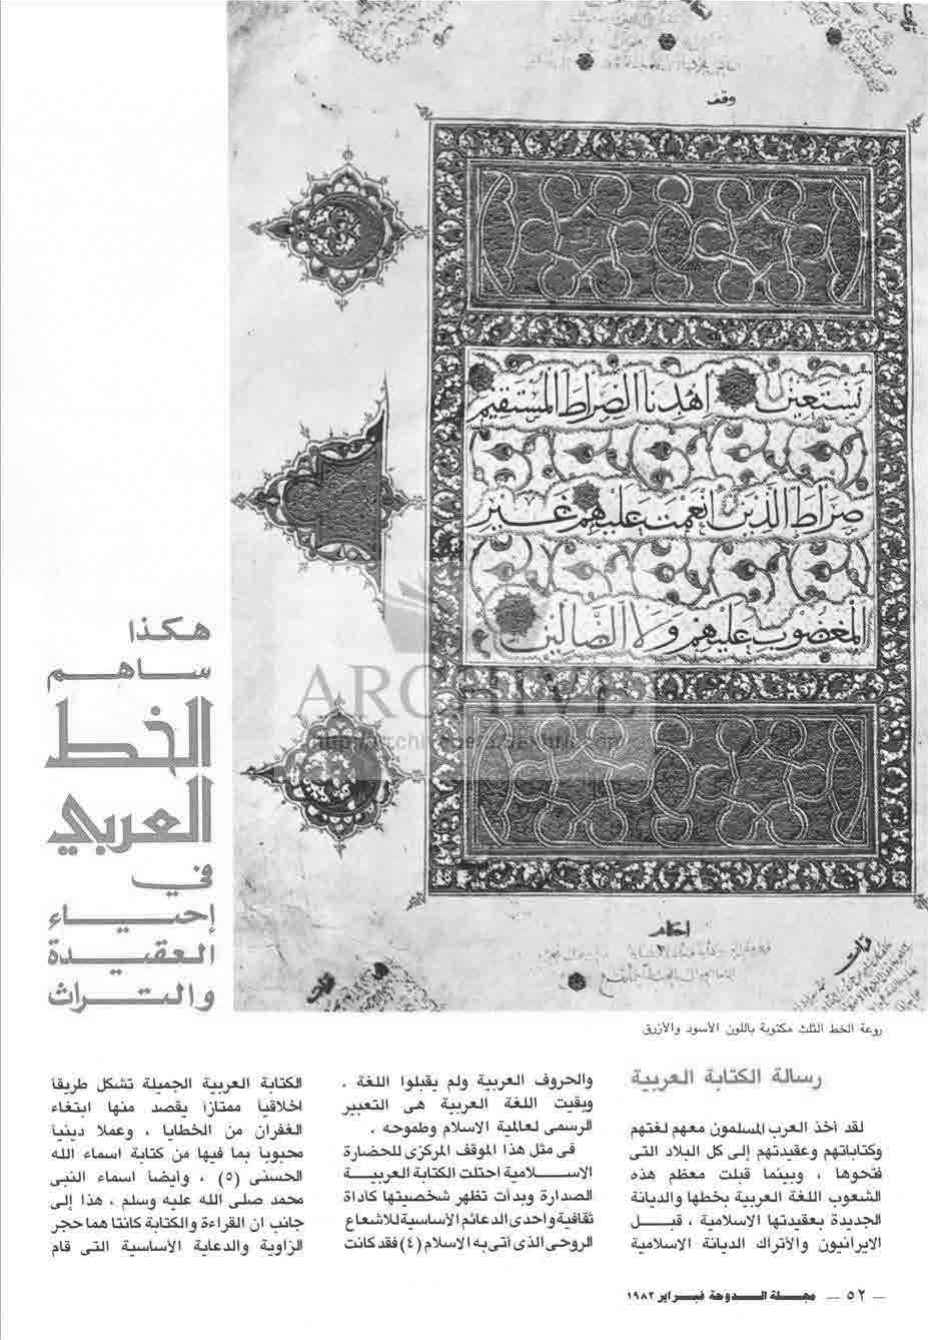 وقف
نستعين اهدنا الصراط المستقيم
صراط الذين انعمت عليهم غير
المغضوب عليهم ولا الضالين
ARCHIVE
هكذا
ساهم
الخط
العربي
في
إحياء
العقيدة
والتراث
روعة الخط الثلث مكتوبة باللون الأسود والأزرق
رسالة الكتابة العربية
لقد أخذ العرب المسلمون معهم لغتهم
وكتاباتهم وعقيدتهم إلى كل البلاد التى
فتحوها ، وبينما قبلت معظم هذه
الشعوب اللغة العربية بخطها والديانة
الجديدة بعقيدتها الاسلامية ، قبل
الايرانيون والأتراك الديانة الاسلامية
والحروف العربية ولم يقبلوا اللغة .
وبقيت اللغة العربية هى التعبير
الرسمى لعالمية الاسلام وطموحه .
فى مثل هذا الموقف المركزى للحضارة
الاسلامية احتلت الكتابة العربية
الصدارة وبدأت تظهر شخصيتها كأداة
ثقافية واحدى الدعائم الأساسية للاشعاع
الروحى الذى أتى به الاسلام (٤) فقد كانت
الكتابة العربية الجميلة تشكل طريقا
اخلاقيا ممتازا يقصد منها ابتغاء
الغفران من الخطايا ، وعملا دينيا
محبوبا بما فيها من كتابة اسماء الله
الحسنى (٥) ، وأيضا اسماء النبى
محمد صلى الله عليه وسلم ، هذا إلى
جانب ان القراءة والكتابة كانتا هما حجر
الزاوية والدعاية الأساسية التى قام
— ٥٢ — مجلة الدوحة فبراير ١٩٨٢